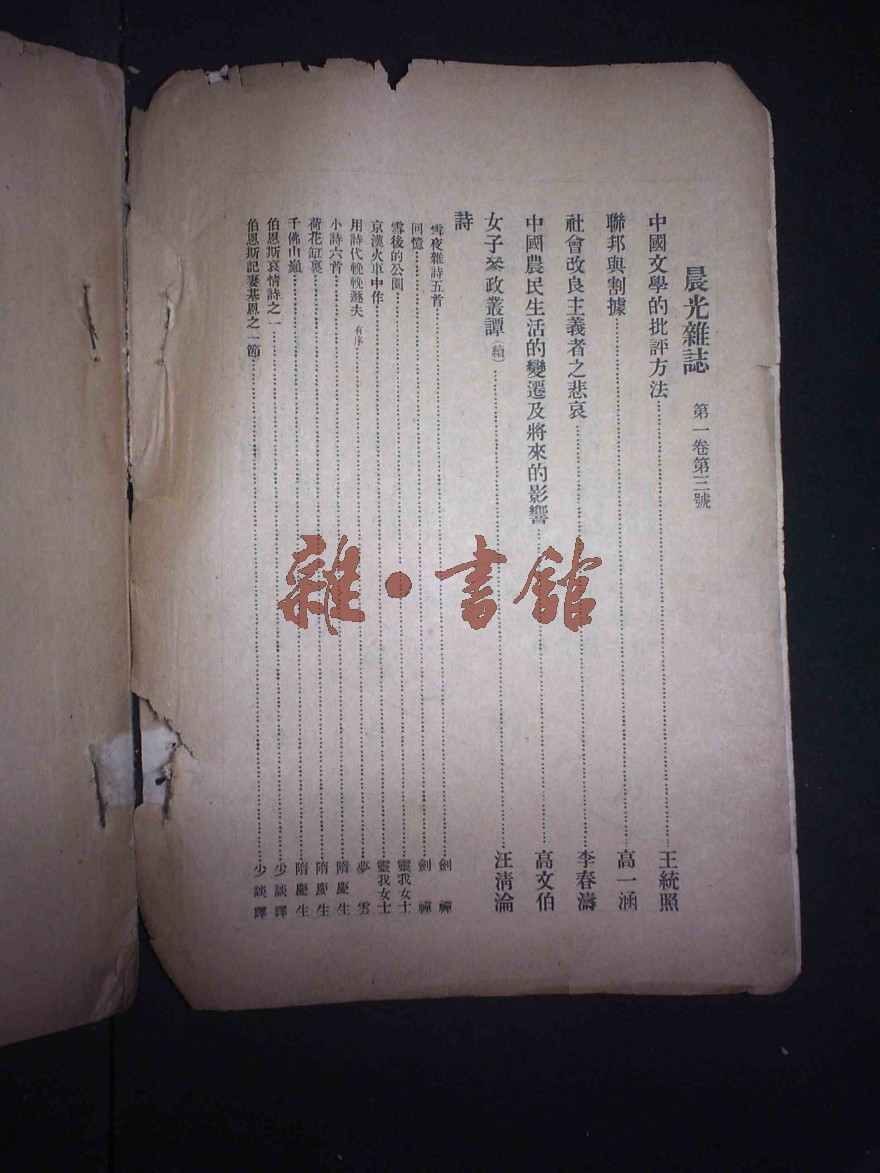 晨光雜誌 第一卷第三號
中國文學的批評方法 王統照
聯邦與割據 高一涵
社會改良主義者之悲哀 李春濤
中國農民生活的變遷及將來的影響 高文伯
女子參政叢譚(續) 汪清淪
詩
雪夜雜詩五首 劍禪
回憶 劍禪
雪後的公園 靈我女士
京漢火車中作 靈我女士
用詩代輓輓遜夫 有序 夢雲
小詩六首 隋慶生
荷花缸裏 隋慶生
千佛山巔 隋慶生
伯恩斯哀情詩之一 少談譯
伯恩斯記妻基恩之一節 少談譯
雜·書館